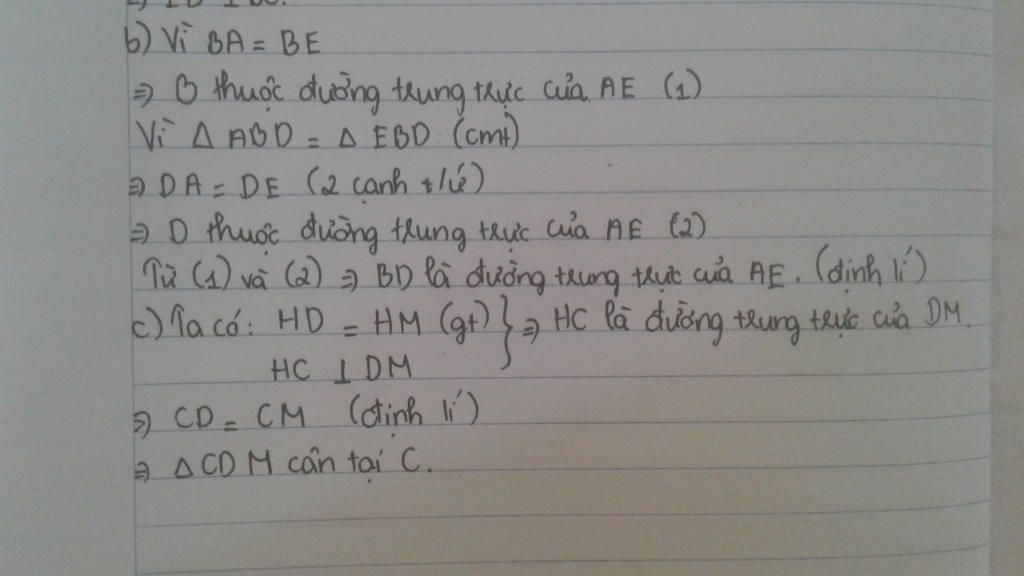 b) Vì BA = BE
⇒ B thuộc đường trung trực của AE (1)
Vì Δ ABD = Δ EBD (cmt)
⇒ DA = DE (2 cạnh t/ứ)
⇒ D thuộc đường trung trực của AE (2)
Từ (1) và (2) ⇒ BD là đường trung trực của AE. (định lí)
c) Ta có: HD = HM (gt) } ⇒ HC là đường trung trực của DM.
HC ⊥ DM
⇒ CD = CM (định lí)
⇒ ΔCDM cân tại C.